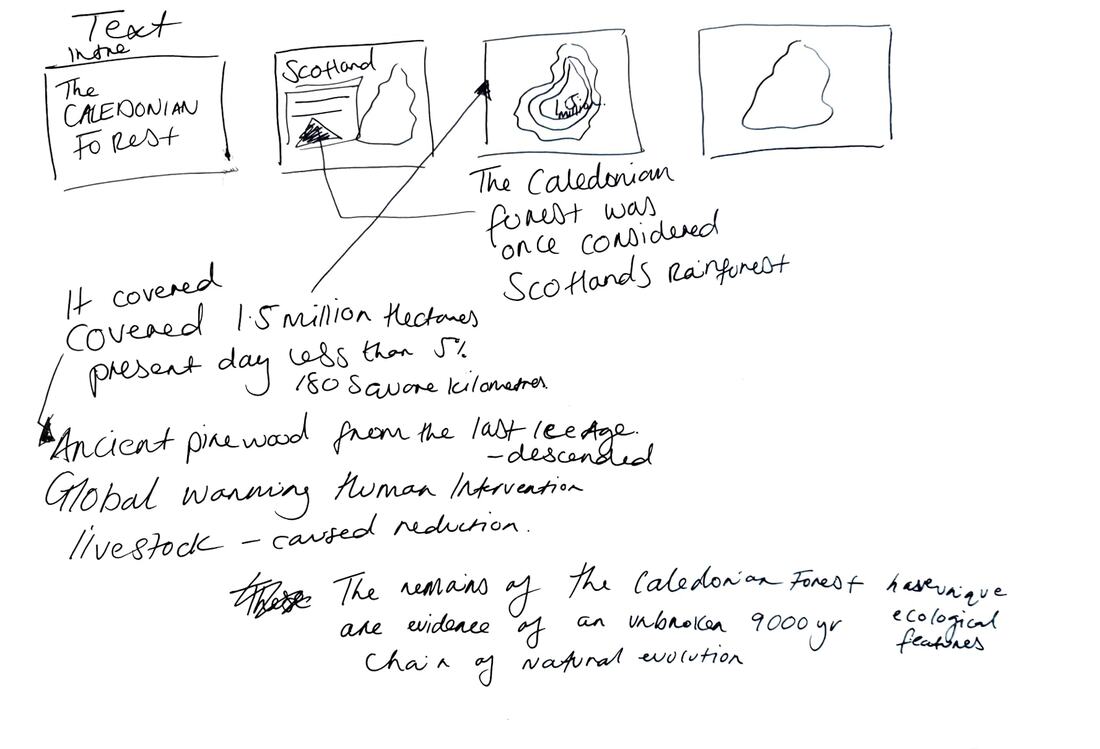 Text
Intro
The
CALEDONIAN
FOREST
Scotland
The Caledonian
forest was
once considered
Scotlands Rainforest
It covered
covered 1.5 million Hectares
present day less than 5%
180 Square kilometres.
Ancient pinewood from the last Ice Age.
- descended
Global warming Human Intervention
livestock - caused reduction.
These The remains of the Caledonian Forest has unique
are evidence of an unbroken 9000 yr ecological
chain of natural evolution features